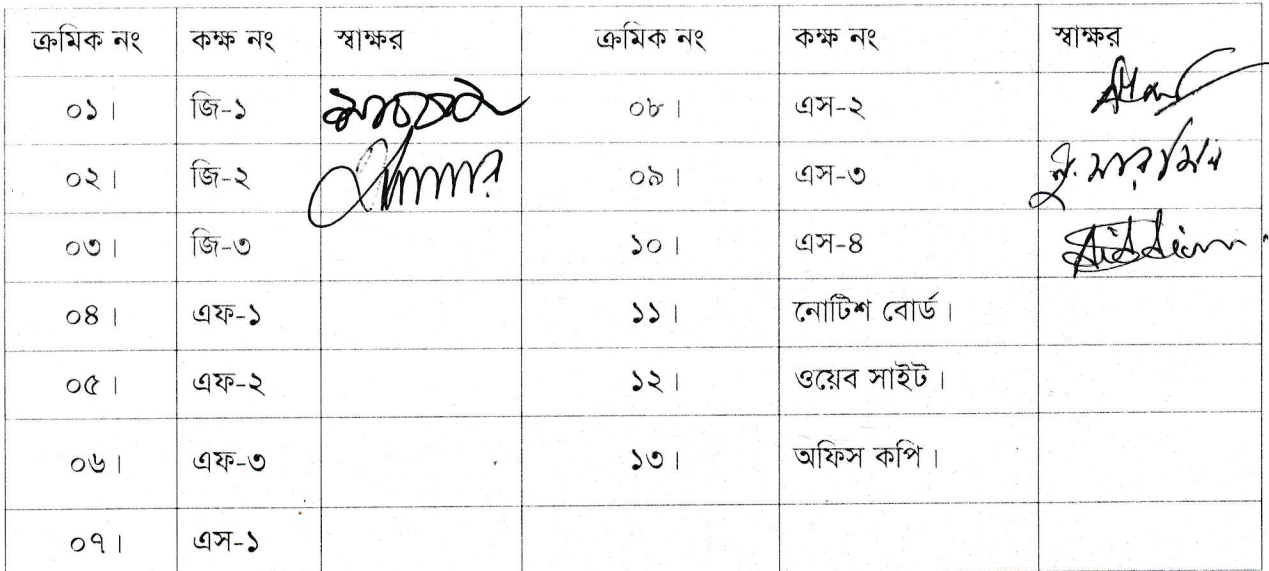 ক্রমিক নং কক্ষ নং স্বাক্ষর ক্রমিক নং কক্ষ নং স্বাক্ষর
০১। জি-১ ০৮। এস-২
০২। জি-২ ০৯। এস-৩
০৩। জি-৩ ১০। এস-৪
০৪। এফ-১ ১১। নোটিশ বোর্ড।
০৫। এফ-২ ১২। ওয়েব সাইট।
০৬। এফ-৩ ১৩। অফিস কপি।
০৭। এস-১